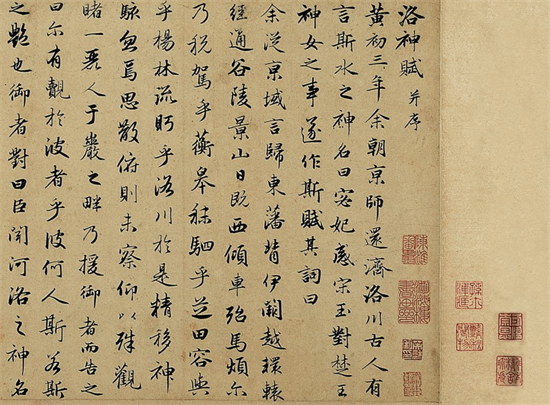 洛神賦 并序
黃初三年余朝京師還濟洛川古人有
言斯水之神名曰宓妃感宋玉對楚王
神女之事遂作斯賦其詞曰
余從京域言歸東藩背伊闕越轘轅
經通谷陵景山日既西傾車殆馬煩尔
乃稅駕乎蘅皋秣駟乎芝田容與
乎楊林流眄乎洛川於是精移神
駭忽焉思散俯則未察仰以殊觀
睹一麗人于巖之畔乃援御者而告之
曰尔有覿於彼者乎彼何人斯若斯
之艷也御者對曰臣聞河洛之神名